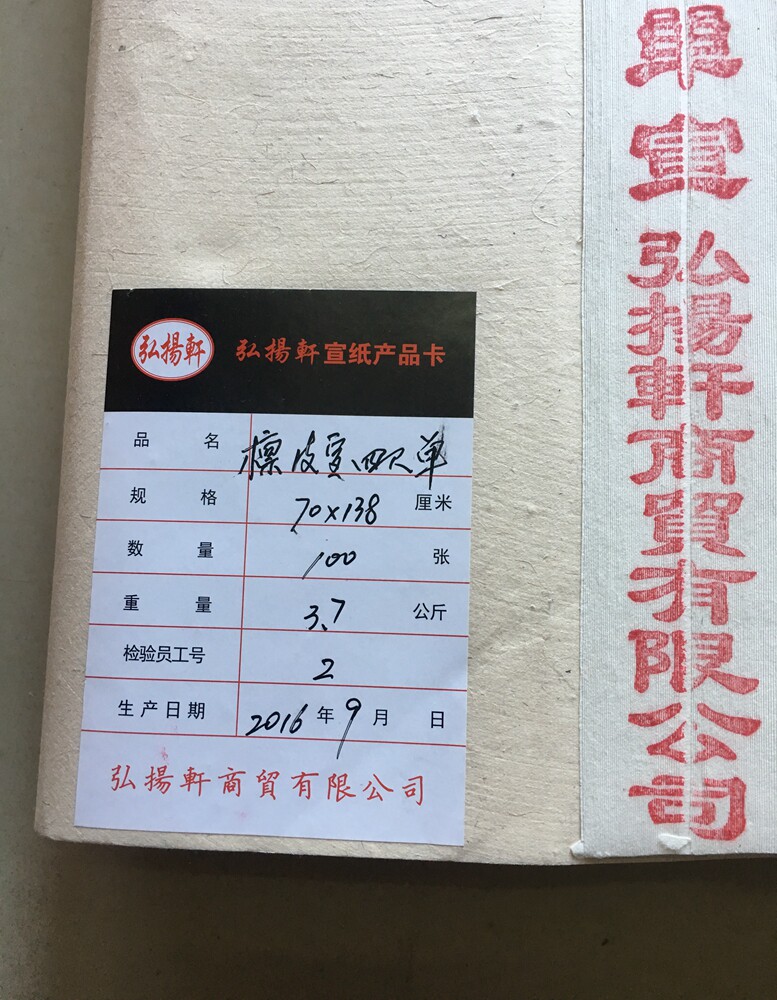 弘揚軒
弘揚軒宣纸产品卡
品 名 皮宣、四尺单
规 格 70×138 厘米
数 量 100 张
重 量 3.7 公斤
检验员工号 2
生产日期 2016 年 9 月 日
弘揚軒商貿有限公司
單宣 弘揚軒商貿有限公司